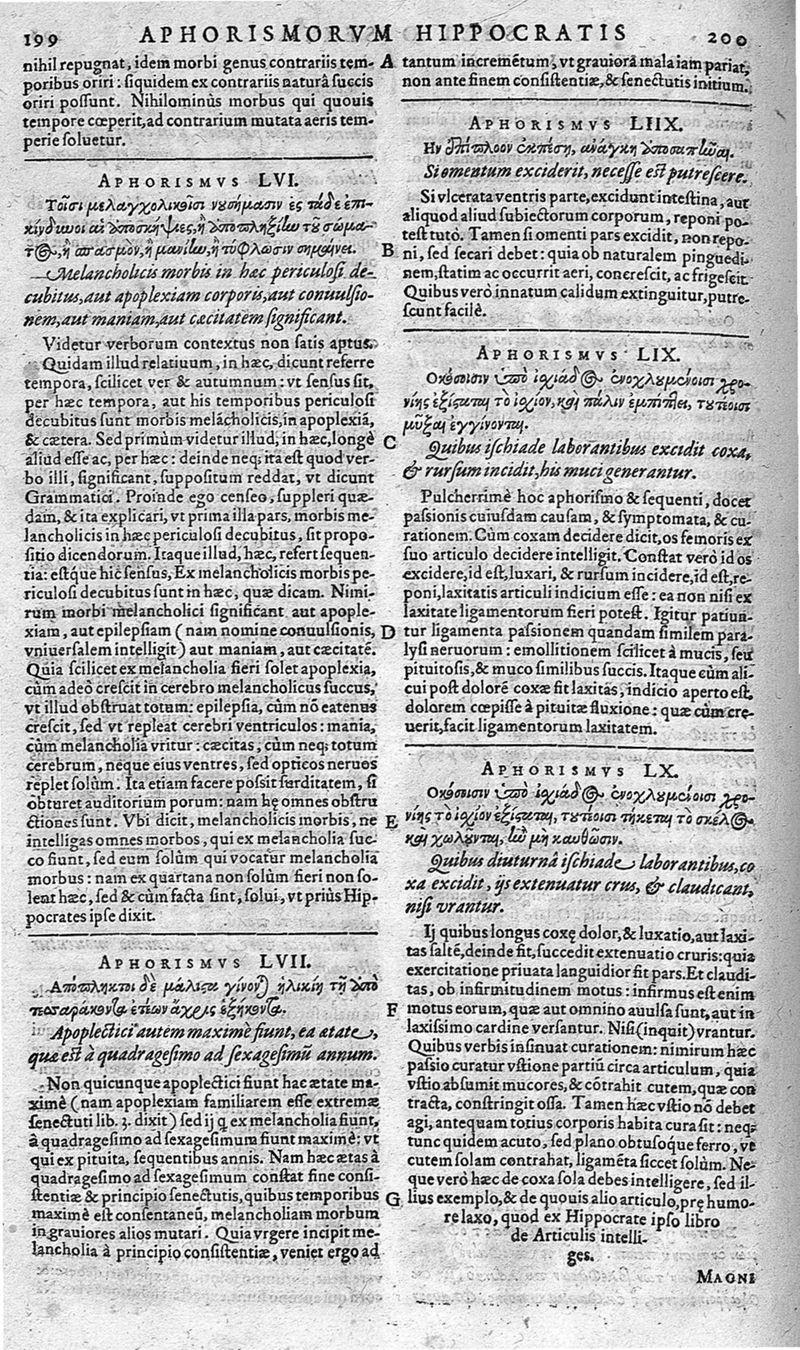 199
APHORISMORVM HIPPOCRATIS
200
nihil repugnat, idem morbi genus contrariis tem-
poribus oriri: siquidem ex contrariis naturâ succis
oriri possunt. Nihilominùs morbus qui quouis
tempore cœperit, ad contrarium mutata aeris tem-
perie soluetur.
APHORISMVS LVI.
Τοῖσι μελαγχολικοῖσι νουσήμασιν ἐς τάδε ἐπι-
κίνδυνοι αἱ ἀποσκήψιες, ἢ ἀπόπληξίω τοῦ σώμα-
τος, ἢ σπασμὸν, ἢ μανίω, ἢ τύφλωσιν σημαίνει.
Melancholicis morbis in hæc periculosi de-
cubitus, aut apoplexiam corporis, aut conuulsio-
nem, aut maniam, aut cæcitatem significant.
Videtur verborum contextus non satis aptus.
Quidam illud relatiuum, in hæc, dicunt referre
tempora, scilicet ver & autumnum: vt sensus sit,
per hæc tempora, aut his temporibus periculosi
decubitus sunt morbis melācholicis, in apoplexiā,
& cætera. Sed primùm videtur illud, in hæc, longè
aliud esse ac, per hæc: deinde neq; ita est quod ver-
bo illi, significant, suppositum reddat, vt dicunt
Grammatici. Proinde ego censeo, suppleri quæ-
dam, & ita explicari, vt prima illa pars, morbis me-
lancholicis in hæc periculosi decubitus, sit propo-
sitio dicendorum. Itaque illud, hæc, refert sequen-
tia: estque hic sensus, Ex melancholicis morbis pe-
riculosi decubitus sunt in hæc, quæ dicam. Nimi-
rum morbi melancholici significant aut apople-
xiam, aut epilepsiam (nam nomine conuulsionis,
vniuersalem intelligit) aut maniam, aut cæcitatē.
Quia scilicet ex melancholia fieri solet apoplexia,
cùm adeò crescit in cerebro melancholicus succus,
vt illud obstruat totum: epilepsia, cùm nō eatenus
crescit, sed vt repleat cerebri ventriculos: mania,
cùm melancholia vritur: cæcitas, cùm neq; totum
cerebrum, neque eius ventres, sed opticos neruos
replet solùm. Ita etiam facere possit surditatem, si
obturet auditorium porum: nam hę omnes obstru
ctiones sunt. Vbi dicit, melancholicis morbis, ne
intelligas omnes morbos, qui ex melancholia suc-
co fiunt, sed eum solùm qui vocatur melancholia
morbus: nam ex quartana non solùm fieri non so-
lent hæc, sed & cùm facta sint, solui, vt priùs Hip-
pocrates ipse dixit.
APHORISMVS LVII.
Απόπληκτοι δὲ μάλιςα γίνονται ἡλικίῃ τῇ ἀπὸ
τεσσαράκοντα ἐτέων ἄχρις ἑξήκοντα.
Apoplectici autem maximè fiunt, ea ætate,
quæ est à quadragesimo ad sexagesimū annum.
Non quicunque apoplectici fiunt hac ætate ma-
ximè (nam apoplexiam familiarem esse extremæ
senectuti lib. 3. dixit) sed ij q ex melancholia fiunt,
à quadragesimo ad sexagesimum fiunt maximè: vt
qui ex pituita, sequentibus annis. Nam hæc ætas à
quadragesimo ad sexagesimum constat fine consi-
stentiæ & principio senectutis, quibus temporibus
maximè est consentaneū, melancholiam morbum
in grauiores alios mutari. Quia vrgere incipit me-
lancholia à principio consistentiæ, veniet ergo ad
A
B
C
D
E
F
G
tantum incremētum, vt grauiora mala iam pariat,
non ante finem consistentiæ, & senectutis initium.
APHORISMVS LIIX.
Ην ἐπίπλοον ἐκπέσῃ, ἀνάγκη ἀποσαπῶαι.
Si omentum exciderit, necesse est putrescere.
Si vlcerata ventris parte, excidunt intestina, aut
aliquod aliud subiectorum corporum, reponi po-
test tutò. Tamen si omenti pars excidit, non repo-
ni, sed secari debet: quia ob naturalem pinguedi-
nem, statim ac occurrit aeri, concrescit, ac frigescit.
Quibus verò innatum calidum extinguitur, putre-
scunt facilè.
APHORISMVS LIX.
Οκόσοισιν ὑπὸ ἰσχιάδος ἐνοχλουμένοισι χρο-
νίης ἐξίςαται τὸ ἰσχίον, καὶ πάλιν ἐμπίπτει, τουτέοισι
μύξαι ἐγγίνονται.
Quibus ischiade laborantibus excidit coxa,
& rursum incidit, his muci generantur.
Pulcherrimè hoc aphorismo & sequenti, docet
passionis cuiusdam causam, & symptomata, & cu-
rationem. Cùm coxam decidere dicit, os femoris ex
suo articulo decidere intelligit. Constat verò id os
excidere, id est, luxari, & rursum incidere, id est, re-
poni, laxitatis articuli indicium esse: ea non nisi ex
laxitate ligamentorum fieri potest. Igitur patiun-
tur ligamenta passionem quandam similem para-
lysi neruorum: emollitionem scilicet à mucis, seu
pituitosis, & muco similibus succis. Itaque cùm ali-
cui post dolorē coxæ fit laxitas, indicio aperto est,
dolorem cœpisse à pituitæ fluxione: quæ cùm cre-
uerit, facit ligamentorum laxitatem.
APHORISMVS LX.
Οκόσοισιν ὑπὸ ἰσχιάδος ἐνοχλουμένοισι χρο-
νίης τὸ ἰσχίον ἐξίςαται, τουτέοισι τήκεται τὸ σκέλος
καὶ χωλοῦνται, ἢν μὴ καυθῶσιν.
Quibus diuturnâ ischiade laborantibus, co
xa excidit, ijs extenuatur crus, & claudicant,
nisi vrantur.
Ij quibus longus coxę dolor, & luxatio, aut laxi-
tas saltē, deinde fit, succedit extenuatio cruris: quia
exercitatione priuata languidior fit pars. Et claudi-
tas, ob infirmitudinem motus: infirmus est enim
motus eorum, quæ aut omnino auulsa sunt, aut in
laxissimo cardine versantur. Nisi (inquit) vrantur.
Quibus verbis insinuat curationem: nimirum hæc
passio curatur vstione partiū circa articulum, quia
vstio absumit mucores, & cōtrahit cutem, quæ con
tracta, constringit ossa. Tamen hæc vstio nō debet
agi, antequam totius corporis habita cura sit: neq;
tunc quidem acuto, sed plano obtusoque ferro, vt
cutem solam contrahat, ligamēta siccet solùm. Ne-
que verò hæc de coxa sola debes intelligere, sed il-
lius exemplo, & de quouis alio articulo, prę humo-
re laxo, quod ex Hippocrate ipso libro
de Articulis intelli-
ges.
MAGNI